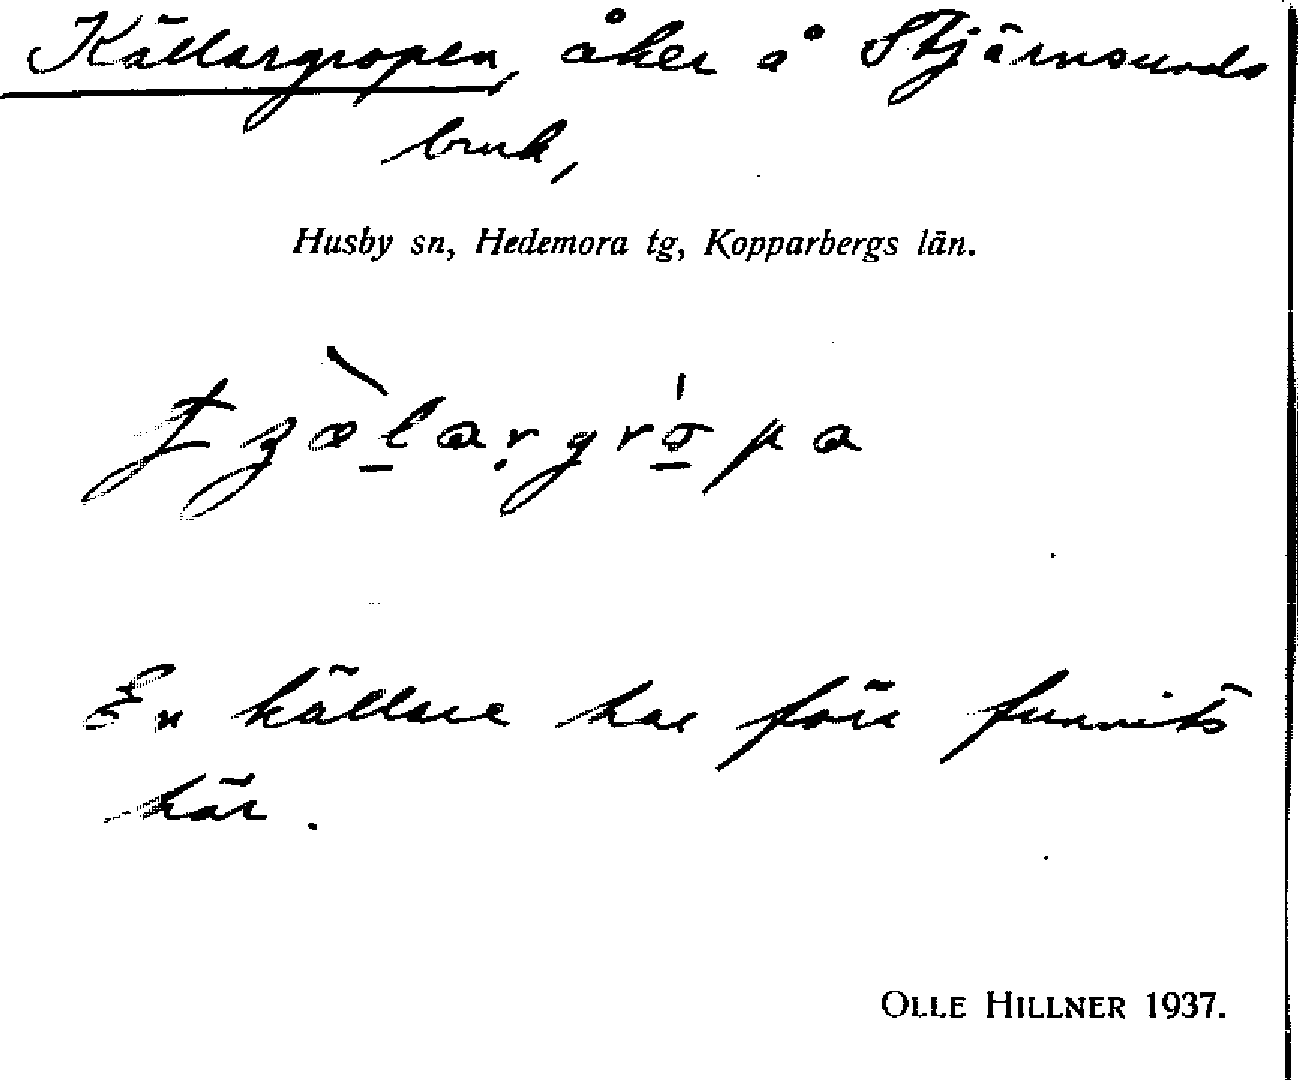 Källargropen, åker å Stjärnsunds
bruk,
Husby sn, Hedemora tg, Kopparbergs län.
En källare har förr funnits
här.
OLLE HILLNER 1937.